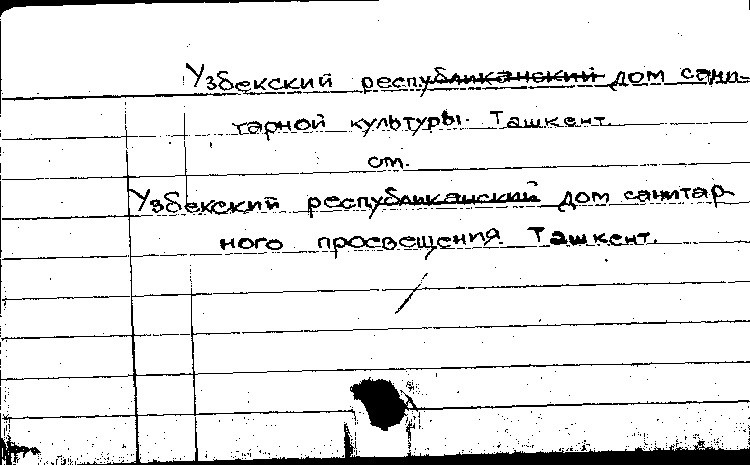 Узбекский республиканский дом сани-
тарной культуры. Ташкент.
см.
Узбекский республиканский дом санитар-
ного просвещения. Ташкент.